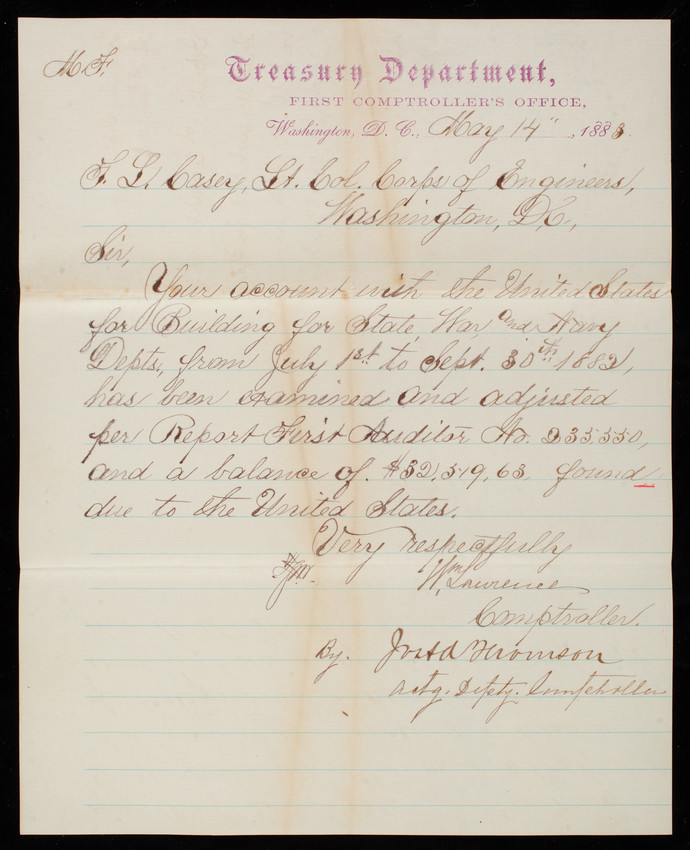 M.F.
Treasury Department,
FIRST COMPTROLLER'S OFFICE,
Washington, D. C., May 14", 1883.
T. L. Casey, Lt. Col. Corps of Engineers,
Washington, D.C.,
Sir,
Your account with the United States
for Building for State, War, and Navy
Depts., from July 1st to Sept. 30th 1882,
has been examined and adjusted
per Report First Auditor No. 235,550,
and a balance of $32,519.63 found
due to the United States.
Very respectfully
Wm Lawrence
Comptroller.
By.
Actg. Depty. Comptroller